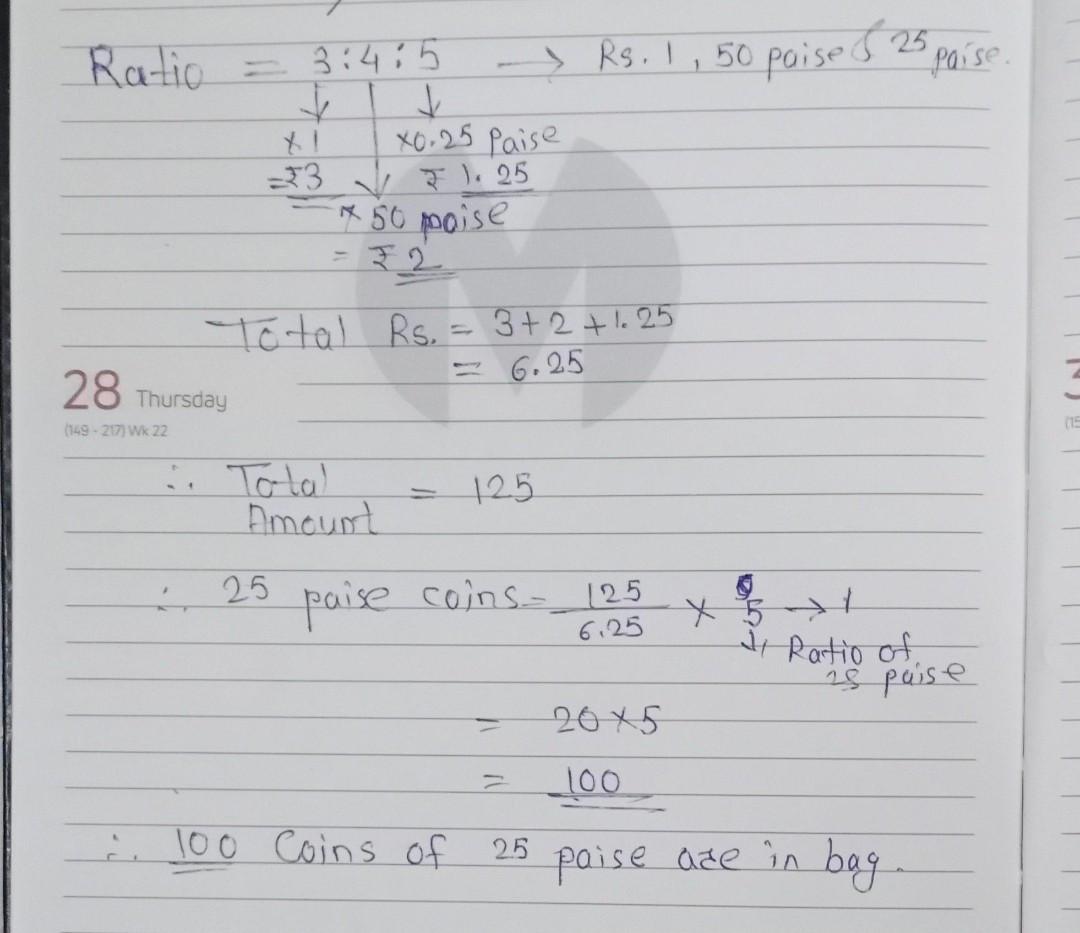 Ratio = 3:4:5 → Rs. 1, 50 paise & 25 paise.
↓ ↓
×1 ×0.25 Paise
=₹3 ₹ 1.25
× 50 paise
= ₹ 2
Total Rs. = 3+2+1.25
= 6.25
28 Thursday
(149 - 217) Wk 22
∴ Total Amount = 125
∴ 25 paise coins = 125/6.25 × 5 → 1
↓, Ratio of
25 paise
= 20×5
= 100
∴ 100 Coins of 25 paise are in bag.